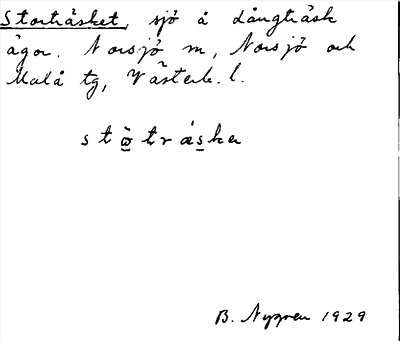 Storträsket, sjö å Långträsk
ägor. Norsjö sn, Norsjö och
Malå tg, Västerb. l.
B. Nygren 1929